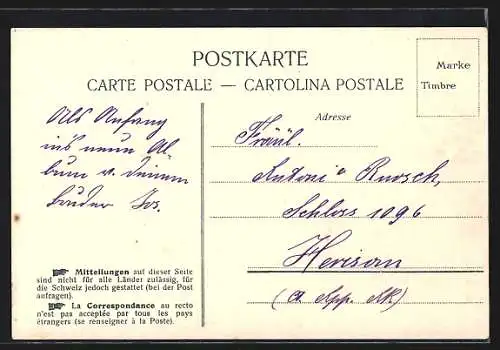 POSTKARTE
CARTE POSTALE — CARTOLINA POSTALE
Marke
Timbre
Adresse
Als Anfang
in's neue Al
bum v. Deinem
Bruder Jos.
Fräul.
Antoni^a Ruosch,
Schloss 1096
Herisau
(Ct. App. AR.)
Mitteilungen auf dieser Seite
sind nicht für alle Länder zulässig, für
die Schweiz jedoch gestattet (bei der Post
anfragen).
La Correspondance au recto
n'est pas acceptée par tous les pays
étrangers (se renseigner à la Poste).